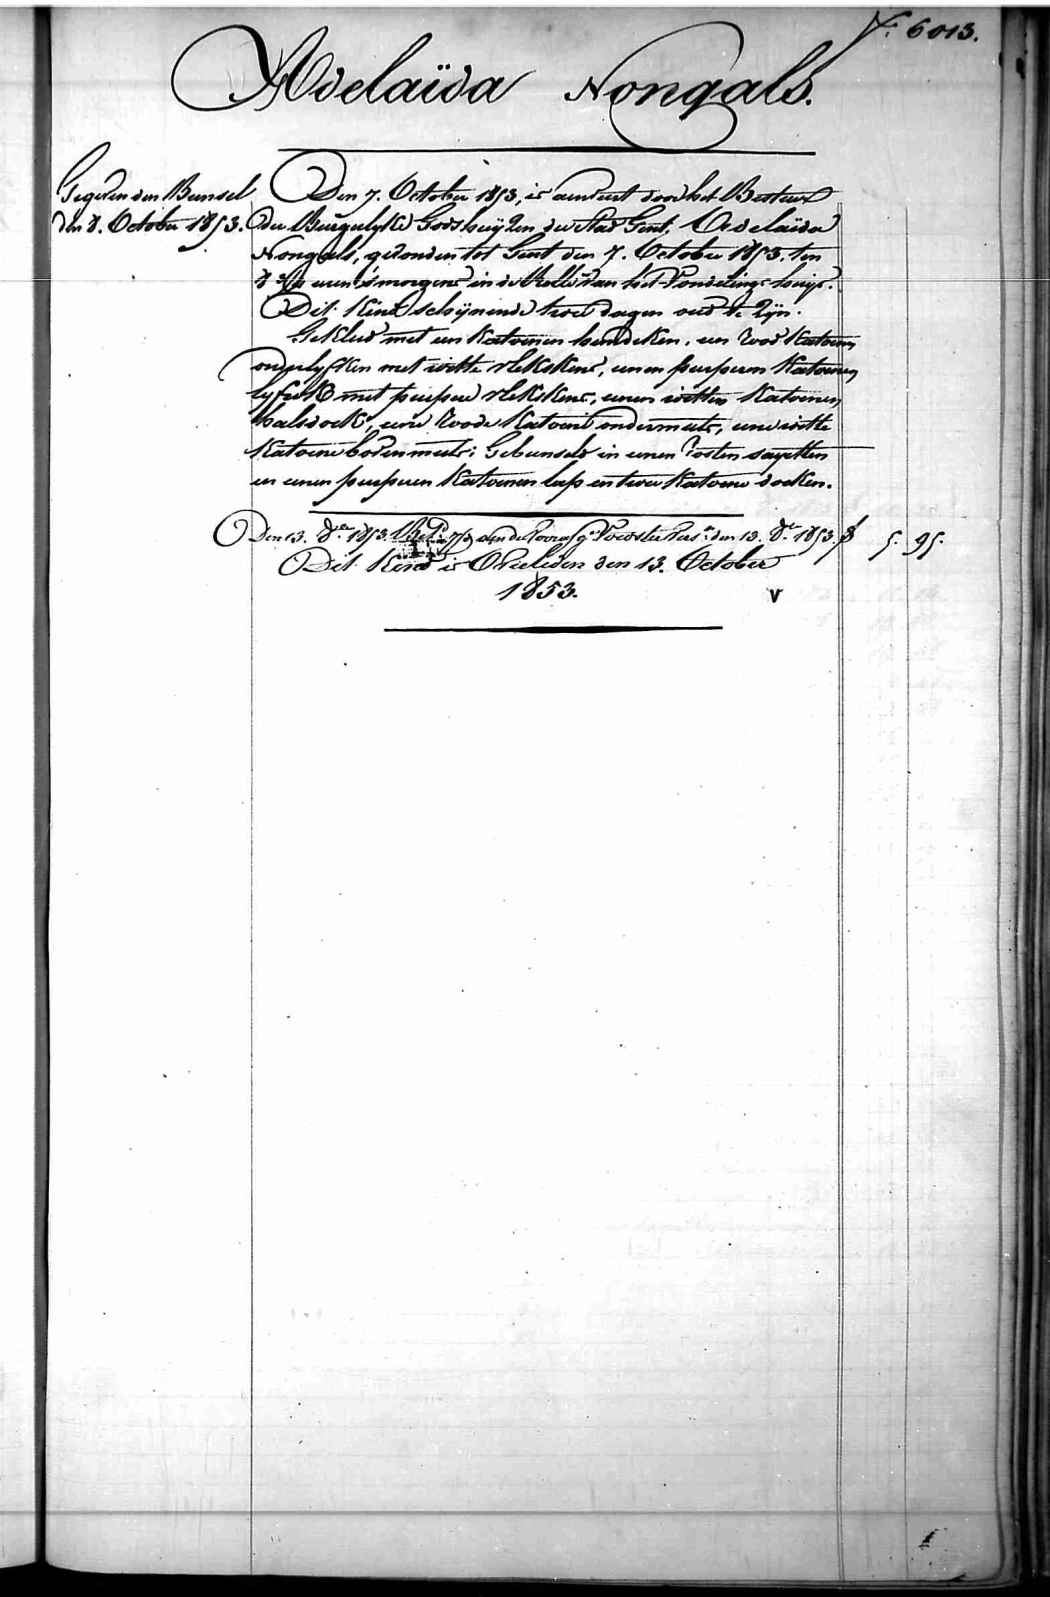 N.º 6013.
Adelaïda Nongals.
Gegeven den Bunsel
den 8. October 1853.
Den 7. October 1853, is aenveert door het Bestuer
der Burgerlyke Godshuyzen der Stad Gent, Adelaïda
Nongals, gevonden tot Gent den 7. October 1853. ten
uren 'smorgens in de Rolle van het Vondelingshuys.
Dit Kind schynende twee dagen oud te zyn.
Gekleed met een Katoenen hemdeken, een rood Katoenen
onderlyfken met witte vlekskens, eenen purperen Katoenen
lyfrok met purpere vlekskens, eenen witten Katoenen
halsdoek, eene roode Katoene ondermuts, eene witte
Katoene bovenmuts; Gebunseld in eenen rosten sayetten
en eenen purperen Katoenen lap en twee Katoene doeken.
Den 13. 8.er 1853. aen de den 13. 8.er 1853. 5. 95.
Dit Kind is Overleden den 13. October
1853. V